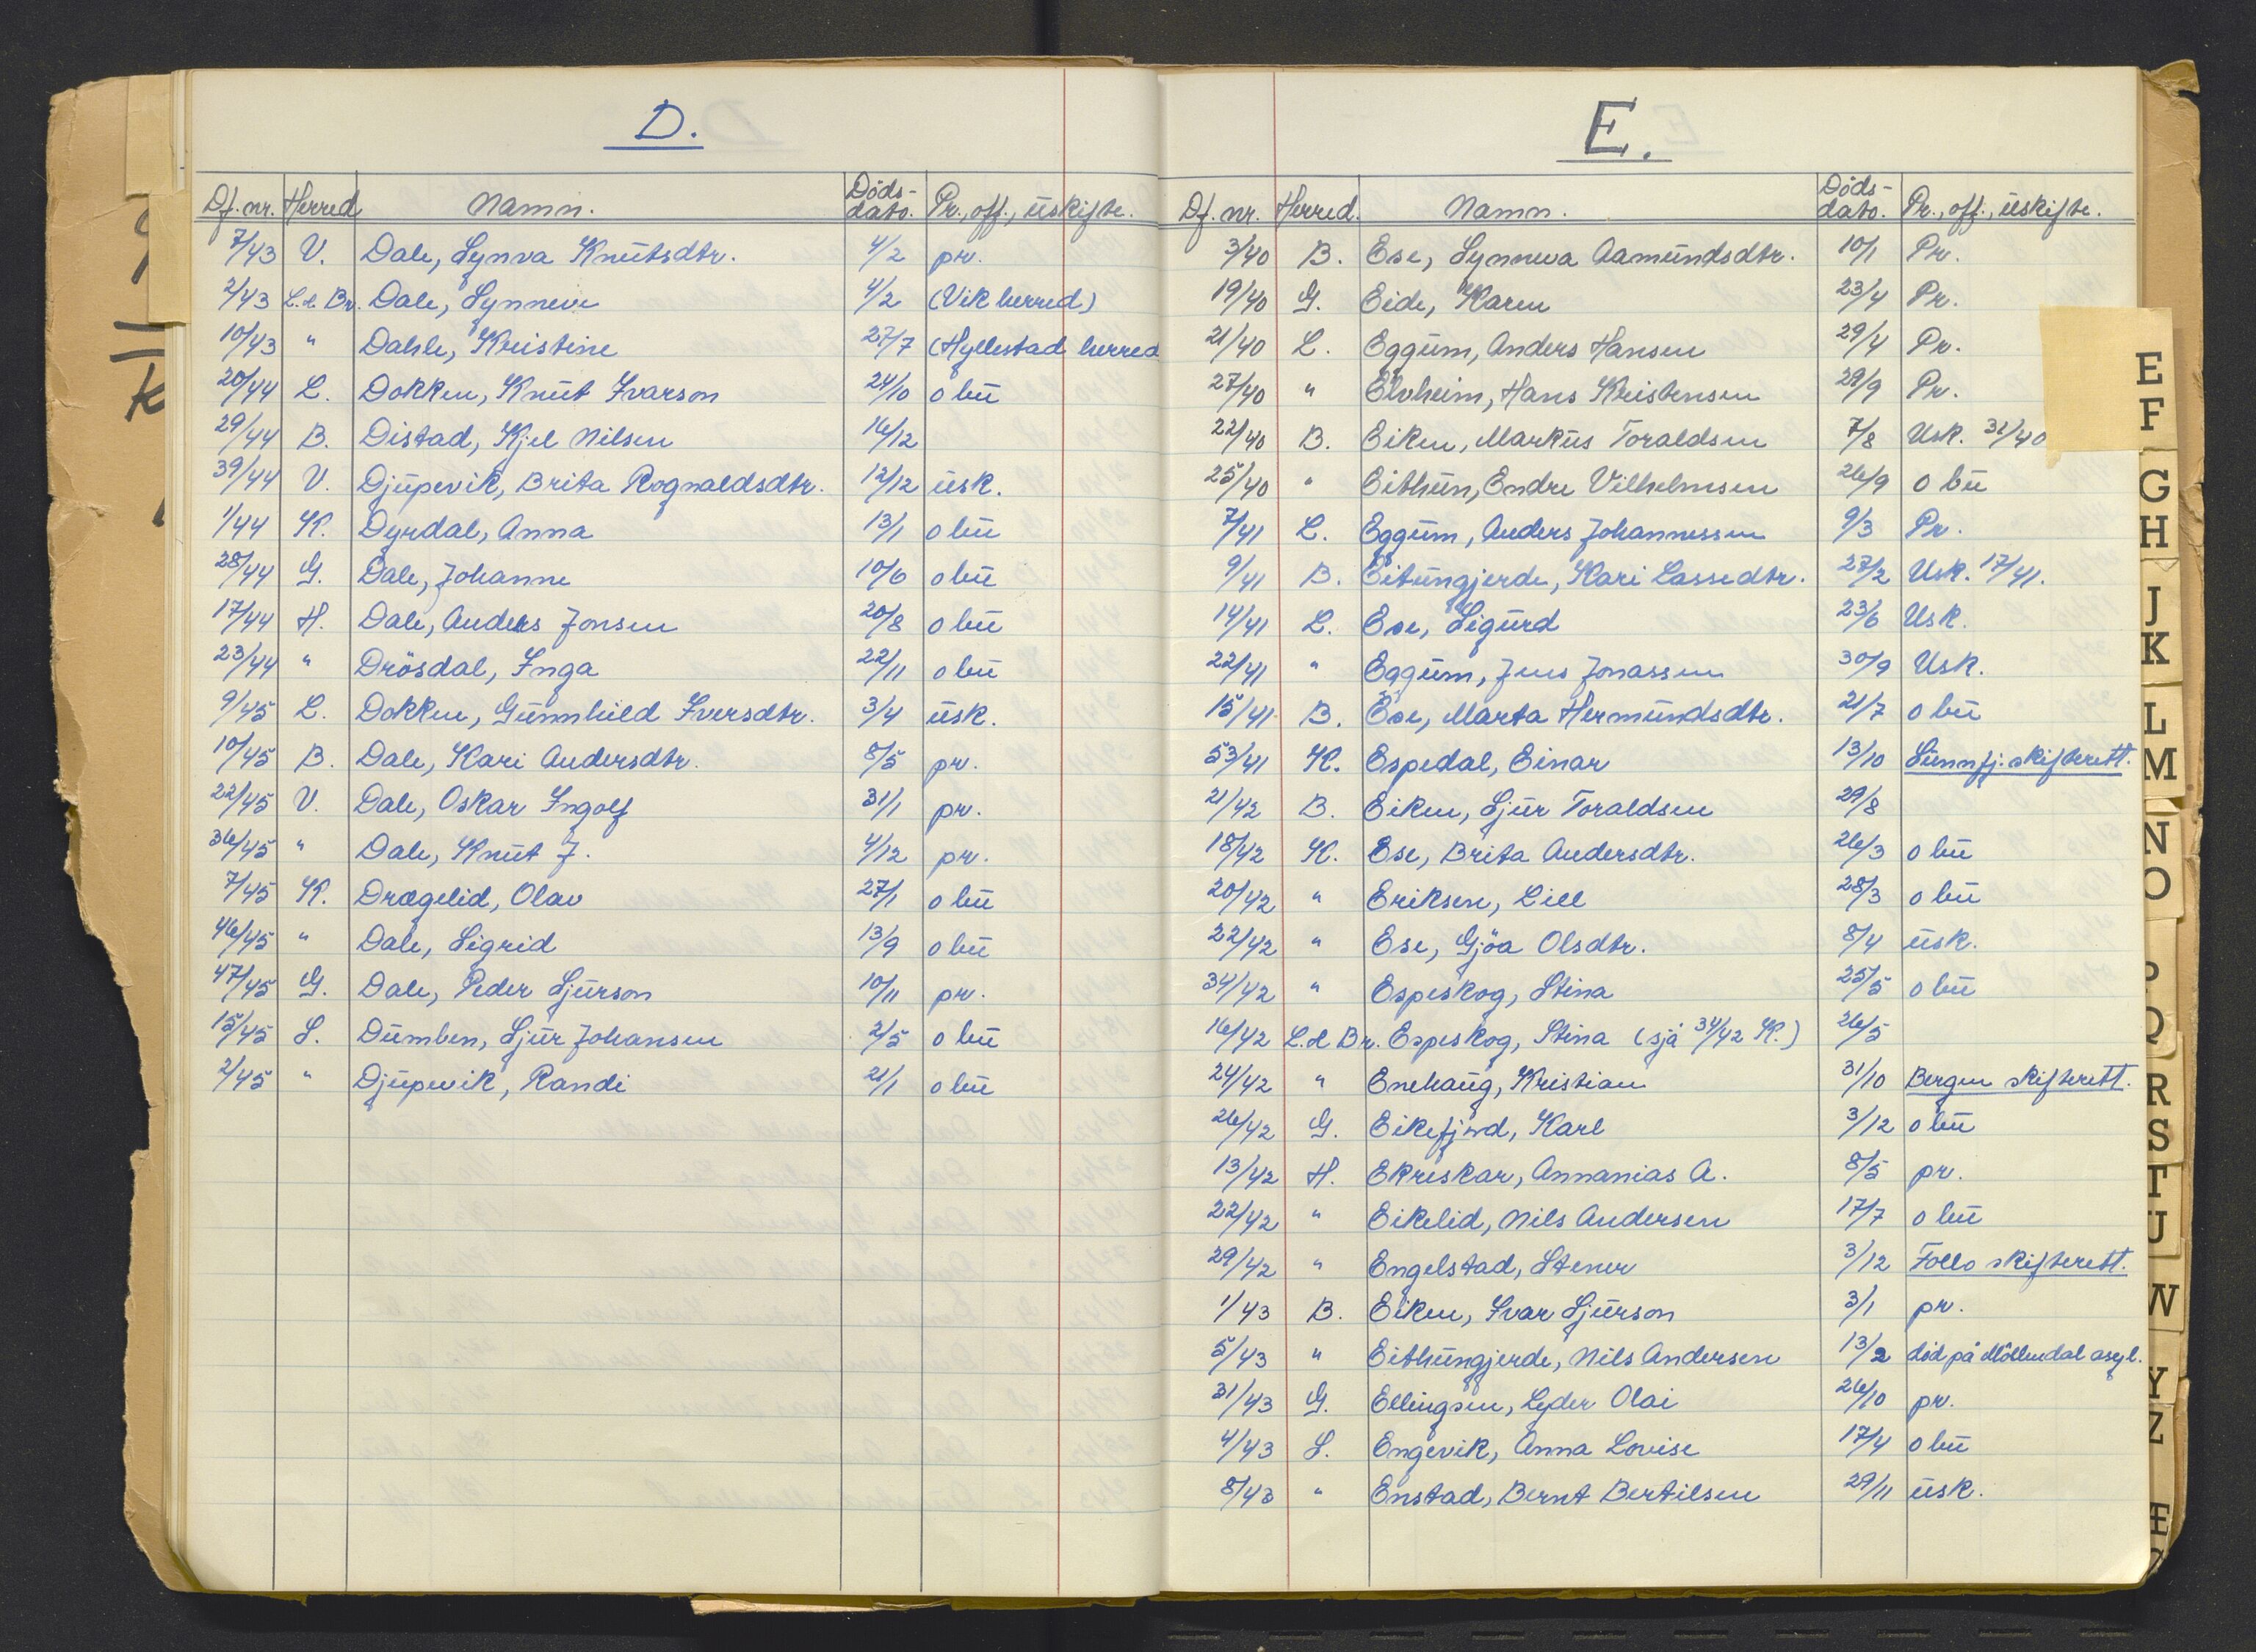 D.
Df. nr. Herred Namn. Döds-dato. Pr., off., uskifte.
7/43 V. Dale, Synva Knutsdtr. 4/2 pr.
2/43 L. d Br. Dale, Synneve 4/2 (Vik herred)
10/43 " Dahle, Kristine 27/7 (Hyllestad herred
20/44 L. Dokken, Knut Ivarson 24/10 o bu
29/44 B. Distad, Kjel Nilsen 16/12
39/44 V. Djupevik, Brita Rognaldsdtr. 12/12 usk.
1/44 K. Dyrdal, Anna 13/1 o bu
28/44 G. Dale, Johanne 10/6 o bu
17/44 H. Dale, Anders Jonsen 20/8 o bu
23/44 " Drösdal, Inga 22/11 o bu
9/45 L. Dokken, Gunnhild Iversdtr. 3/4 usk.
10/45 B. Dale, Kari Andersdtr. 8/5 pr.
22/45 V. Dale, Oskar Ingolf 31/1 pr.
36/45 " Dale, Knut J. 4/12 pr.
7/45 K. Drægelid, Olav 27/1 o bu
46/45 " Dale, Sigrid 13/9 o bu
47/45 G. Dale, Peder Sjurson 10/11 pr.
15/45 S. Dumben, Sjur Johansen 2/5 o bu
2/45 " Djupevik, Randi 21/1 o bu
E.
Df. nr. Herred. Namn. Döds-dato. Pr., off., uskifte.
3/40 B. Ese, Synneva Aamundsdtr. 10/1 Pr.
19/40 G. Eide, Karen 23/4 Pr.
21/40 L. Eggum, Anders Hansen 29/4 Pr.
27/40 " Elvheim, Hans Kristensen 29/9 Pr.
22/40 B. Eiken, Markus Toraldsen 7/8 Usk. 31/40
25/40 " Eithun, Endre Vilhelmsen 26/9 o bu
7/41 L. Eggum, Anders Johannessen 9/3 Pr.
9/41 B. Eitungjerde, Kari Lassedtr. 27/2 Usk. 17/41.
14/41 L. Ese, Sigurd 23/6 Usk.
22/41 " Eggum, Jens Jonassen 30/9 Usk.
15/41 B. Ese, Marta Hermundsdtr. 21/7 o bu
53/41 K. Espedal, Einar 13/10 Sunnfj. skifterett.
21/42 B. Eiken, Sjur Toraldsen 29/8
18/42 K. Ese, Brita Andersdtr. 26/3 o bu
20/42 " Eriksen, Lill 28/3 o bu
22/42 " Ese, Gjöa Olsdtr. 8/4 usk.
34/42 " Espeskog, Stina 25/5 o bu
16/42 L. d Br. Espeskog, Stina (sjå 34/42 K.) 26/5
24/42 " Enehaug, Kristian 31/10 Bergen skifterett.
26/42 G. Eikefjord, Karl 3/12 o bu
13/42 H. Ekreskar, Annanias A. 8/5 pr.
22/42 " Eikelid, Nils Andersen 17/7 o bu
29/42 " Engelstad, Stener 3/12 Follo skifterett.
1/43 B. Eiken, Ivar Sjurson 3/1 pr.
5/43 " Eithungjerde, Nils Andersen 13/2 död på Möllendal asyl.
31/43 G. Ellingsen, Lyder Olai 26/10 pr.
4/43 S. Engevik, Anna Lovise 17/4 o bu
8/43 " Enstad, Bernt Bertilsen 29/11 usk.
E
F
G
H
J
K
L
M
N
O
Q
R
S
T
U
W
Y
Z
Æ